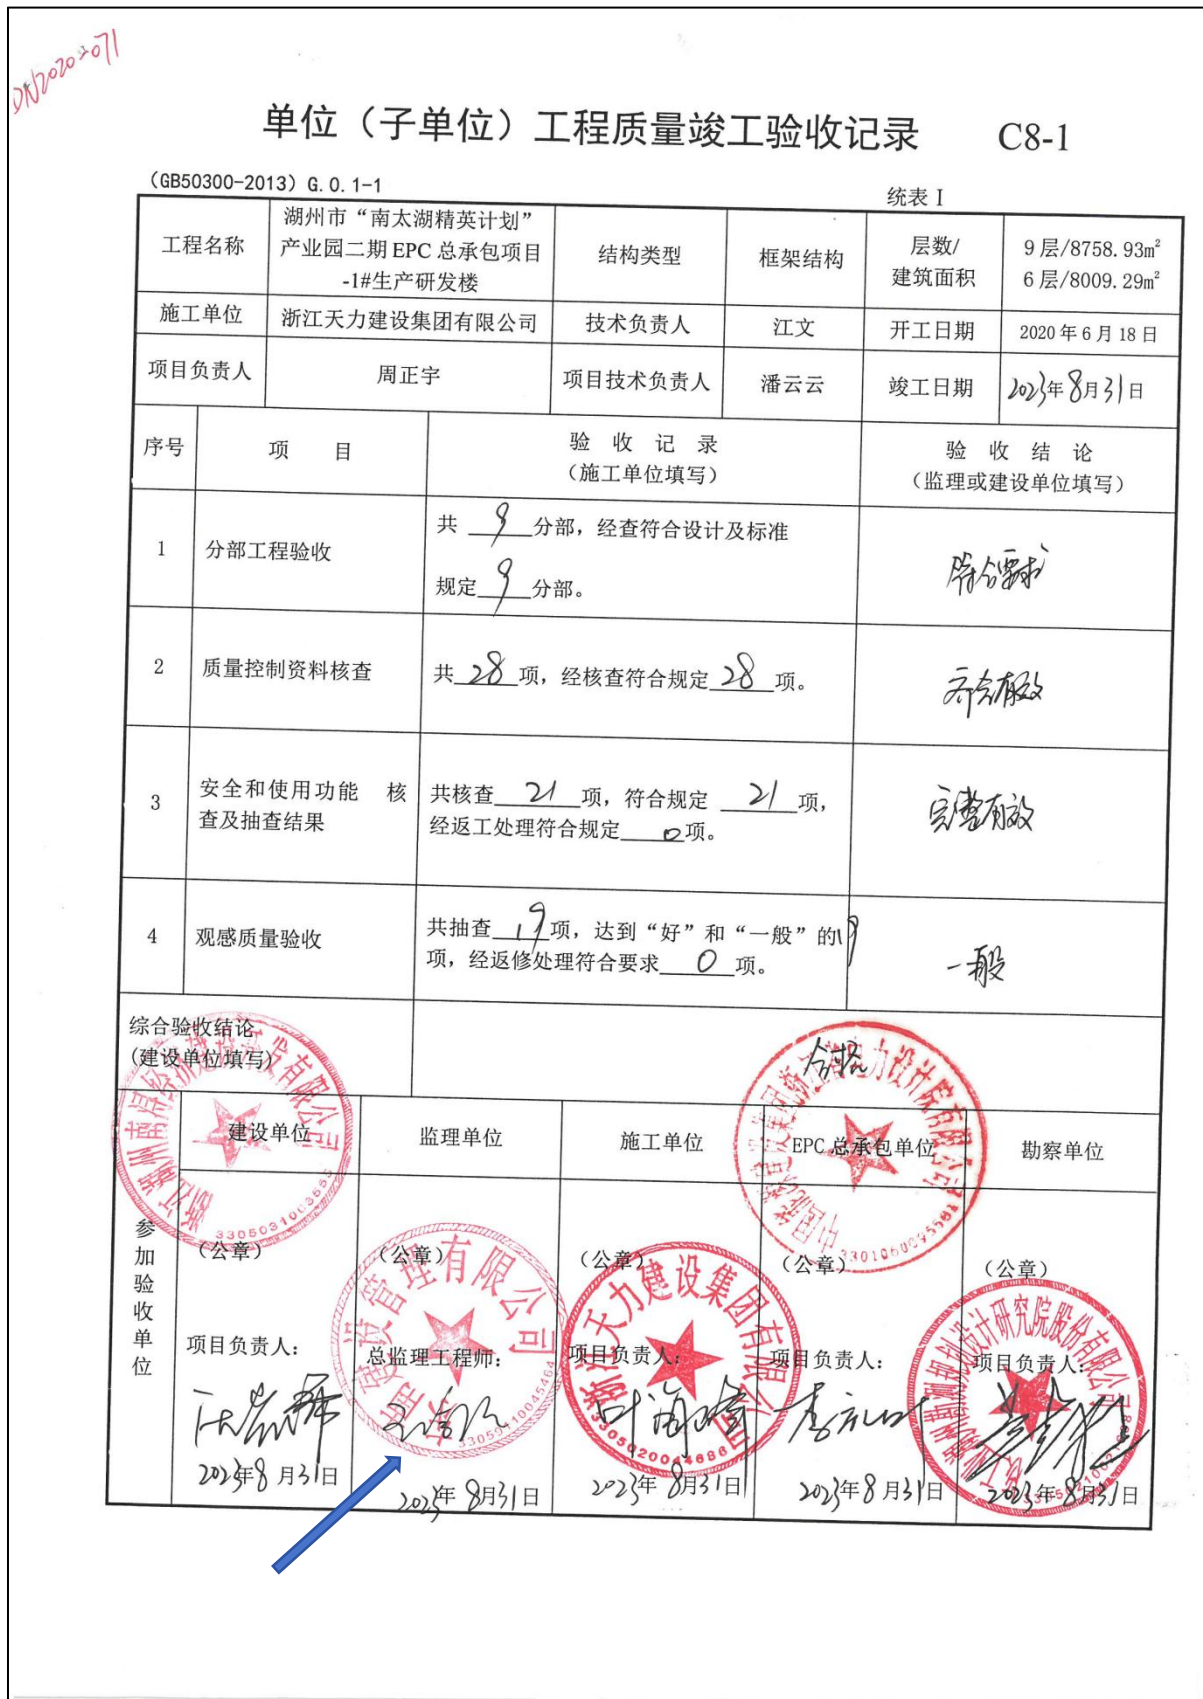 DN2020-071
单位（子单位）工程质量竣工验收记录 C8-1
（GB50300-2013）G.0.1-1 统表 I
工程名称 湖州市“南太湖精英计划”产业园二期 EPC 总承包项目-1#生产研发楼 结构类型 框架结构 层数/建筑面积 9 层/8758.93m² 6 层/8009.29m²
施工单位 浙江天力建设集团有限公司 技术负责人 江文 开工日期 2020 年 6 月 18 日
项目负责人 周正宇 项目技术负责人 潘云云 竣工日期 2023年8月31日
序号 项 目 验 收 记 录 （施工单位填写） 验 收 结 论 （监理或建设单位填写）
1 分部工程验收 共 9 分部，经查符合设计及标准
规定 9 分部。 符合要求
2 质量控制资料核查 共 28 项，经核查符合规定 28 项。 齐全有效
3 安全和使用功能 核查及抽查结果 共核查 21 项，符合规定 21 项，
经返工处理符合规定 0 项。 完整有效
4 观感质量验收 共抽查 19 项，达到“好”和“一般”的 19
项，经返修处理符合要求 0 项。 一般
综合验收结论
(建设单位填写) 合格
参加验收单位 建设单位 监理单位 施工单位 EPC 总承包单位 勘察单位
（公章） （公章） （公章） （公章） （公章）
项目负责人： 总监理工程师： 项目负责人： 项目负责人： 项目负责人：
2023年8月31日 2023年8月31日 2023年8月31日 2023年8月31日 2023年8月31日
浙江天力建设集团有限公司
3305020044686
建设管理有限公司
33059410045464
3305031003655